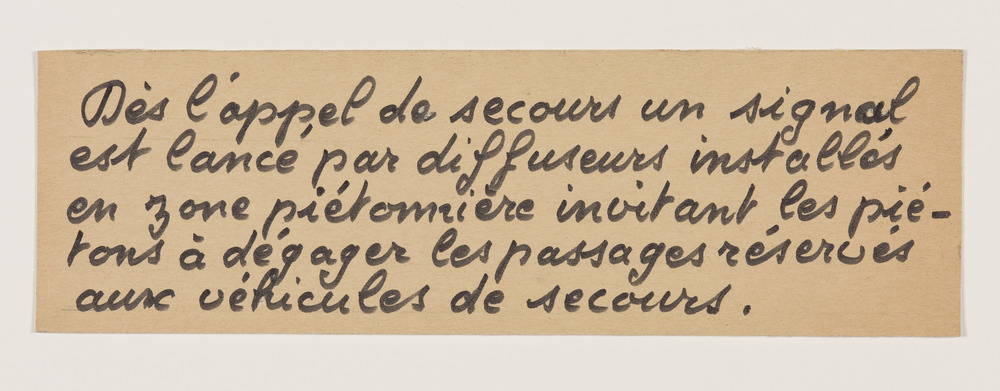 Dès l'appel de secours un signal
est lancé par diffuseurs installés
en zone piétonnière invitant les pié-
tons à dégager les passages réservés
aux véhicules de secours.